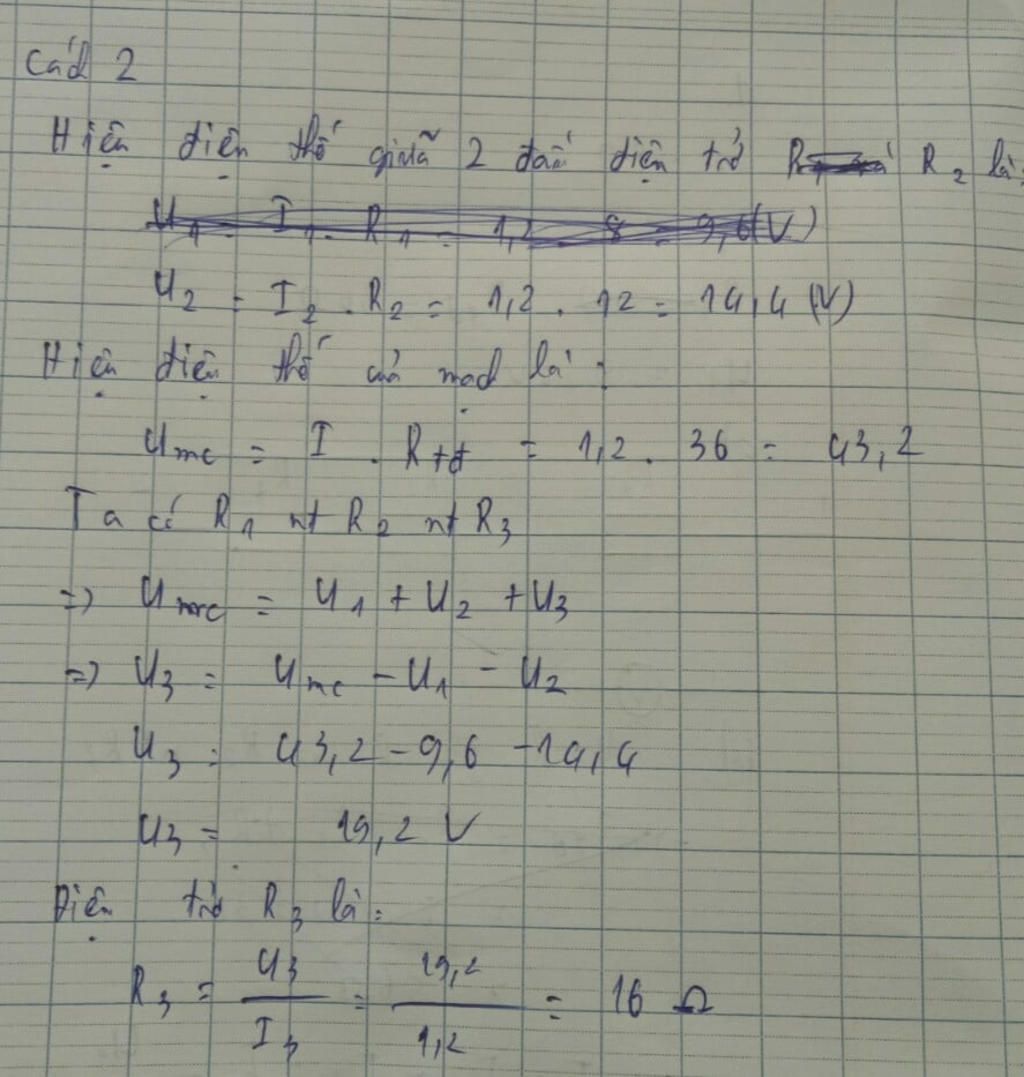 Cách 2
Hiệu điện thế giữa 2 đầu điện trở R₂ là:
U₁ = I₁ . R₁ = 1,2 . 8 = 9,6 (V)
U₂ = I₂ . R₂ = 1,2 . 12 = 14,4 (V)
Hiệu điện thế của mạch là :
Umc = I . Rtđ = 1,2 . 36 = 43,2
Ta có R₁ nt R₂ nt R₃
=> Umc = U₁ + U₂ + U₃
=> U₃ = Umc - U₁ - U₂
U₃ = 43,2 - 9,6 - 14,4
U₃ = 19,2 V
Điện trở R₃ là :
R₃ = U₃ / I₃ = 19,2 / 1,2 = 16 Ω